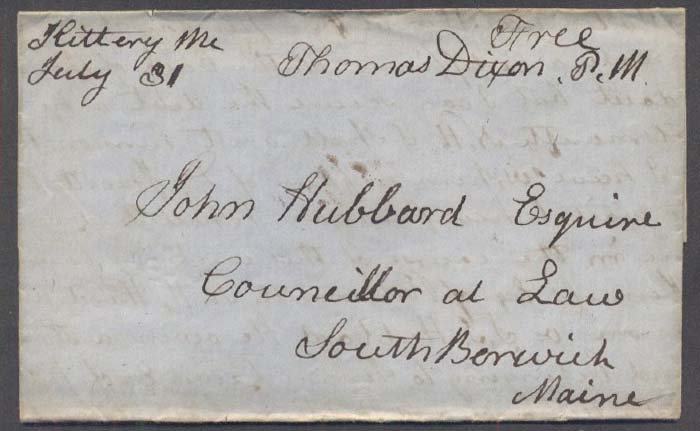 Kittery Me
July 31
Free
Thomas Dixon. P.M.
John Hubbard Esquire
Councillor at Law
South Berwick
Maine